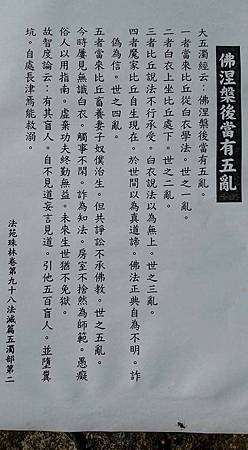 佛涅槃後當有五亂
大五濁經云：佛涅槃後當有五亂。
一者當來比丘從白衣學法。世之一亂。
二者白衣上坐比丘處下。世之二亂。
三者比丘說法不行承受。白衣說法以為無上。世之三亂。
四者魔家比丘自生現在。於世間以為真道諦。佛法正典自為不明。詐
偽為信。世之四亂。
五者當來比丘畜養妻子奴僕治生。但共諍訟不承佛教。世之五亂。
今時屢見無識白衣。觸事不閑。詐為知法。房室不捨然為師範。愚癡
俗人以用指南。虛棄功夫終勤無益。未來生世猶不免獄。
故智度論云：有其盲人。自不見道妄言見道。引他五百盲人。並墮糞
坑。自處長津焉能救溺。
法苑珠林卷第九十八法滅篇五濁部第二